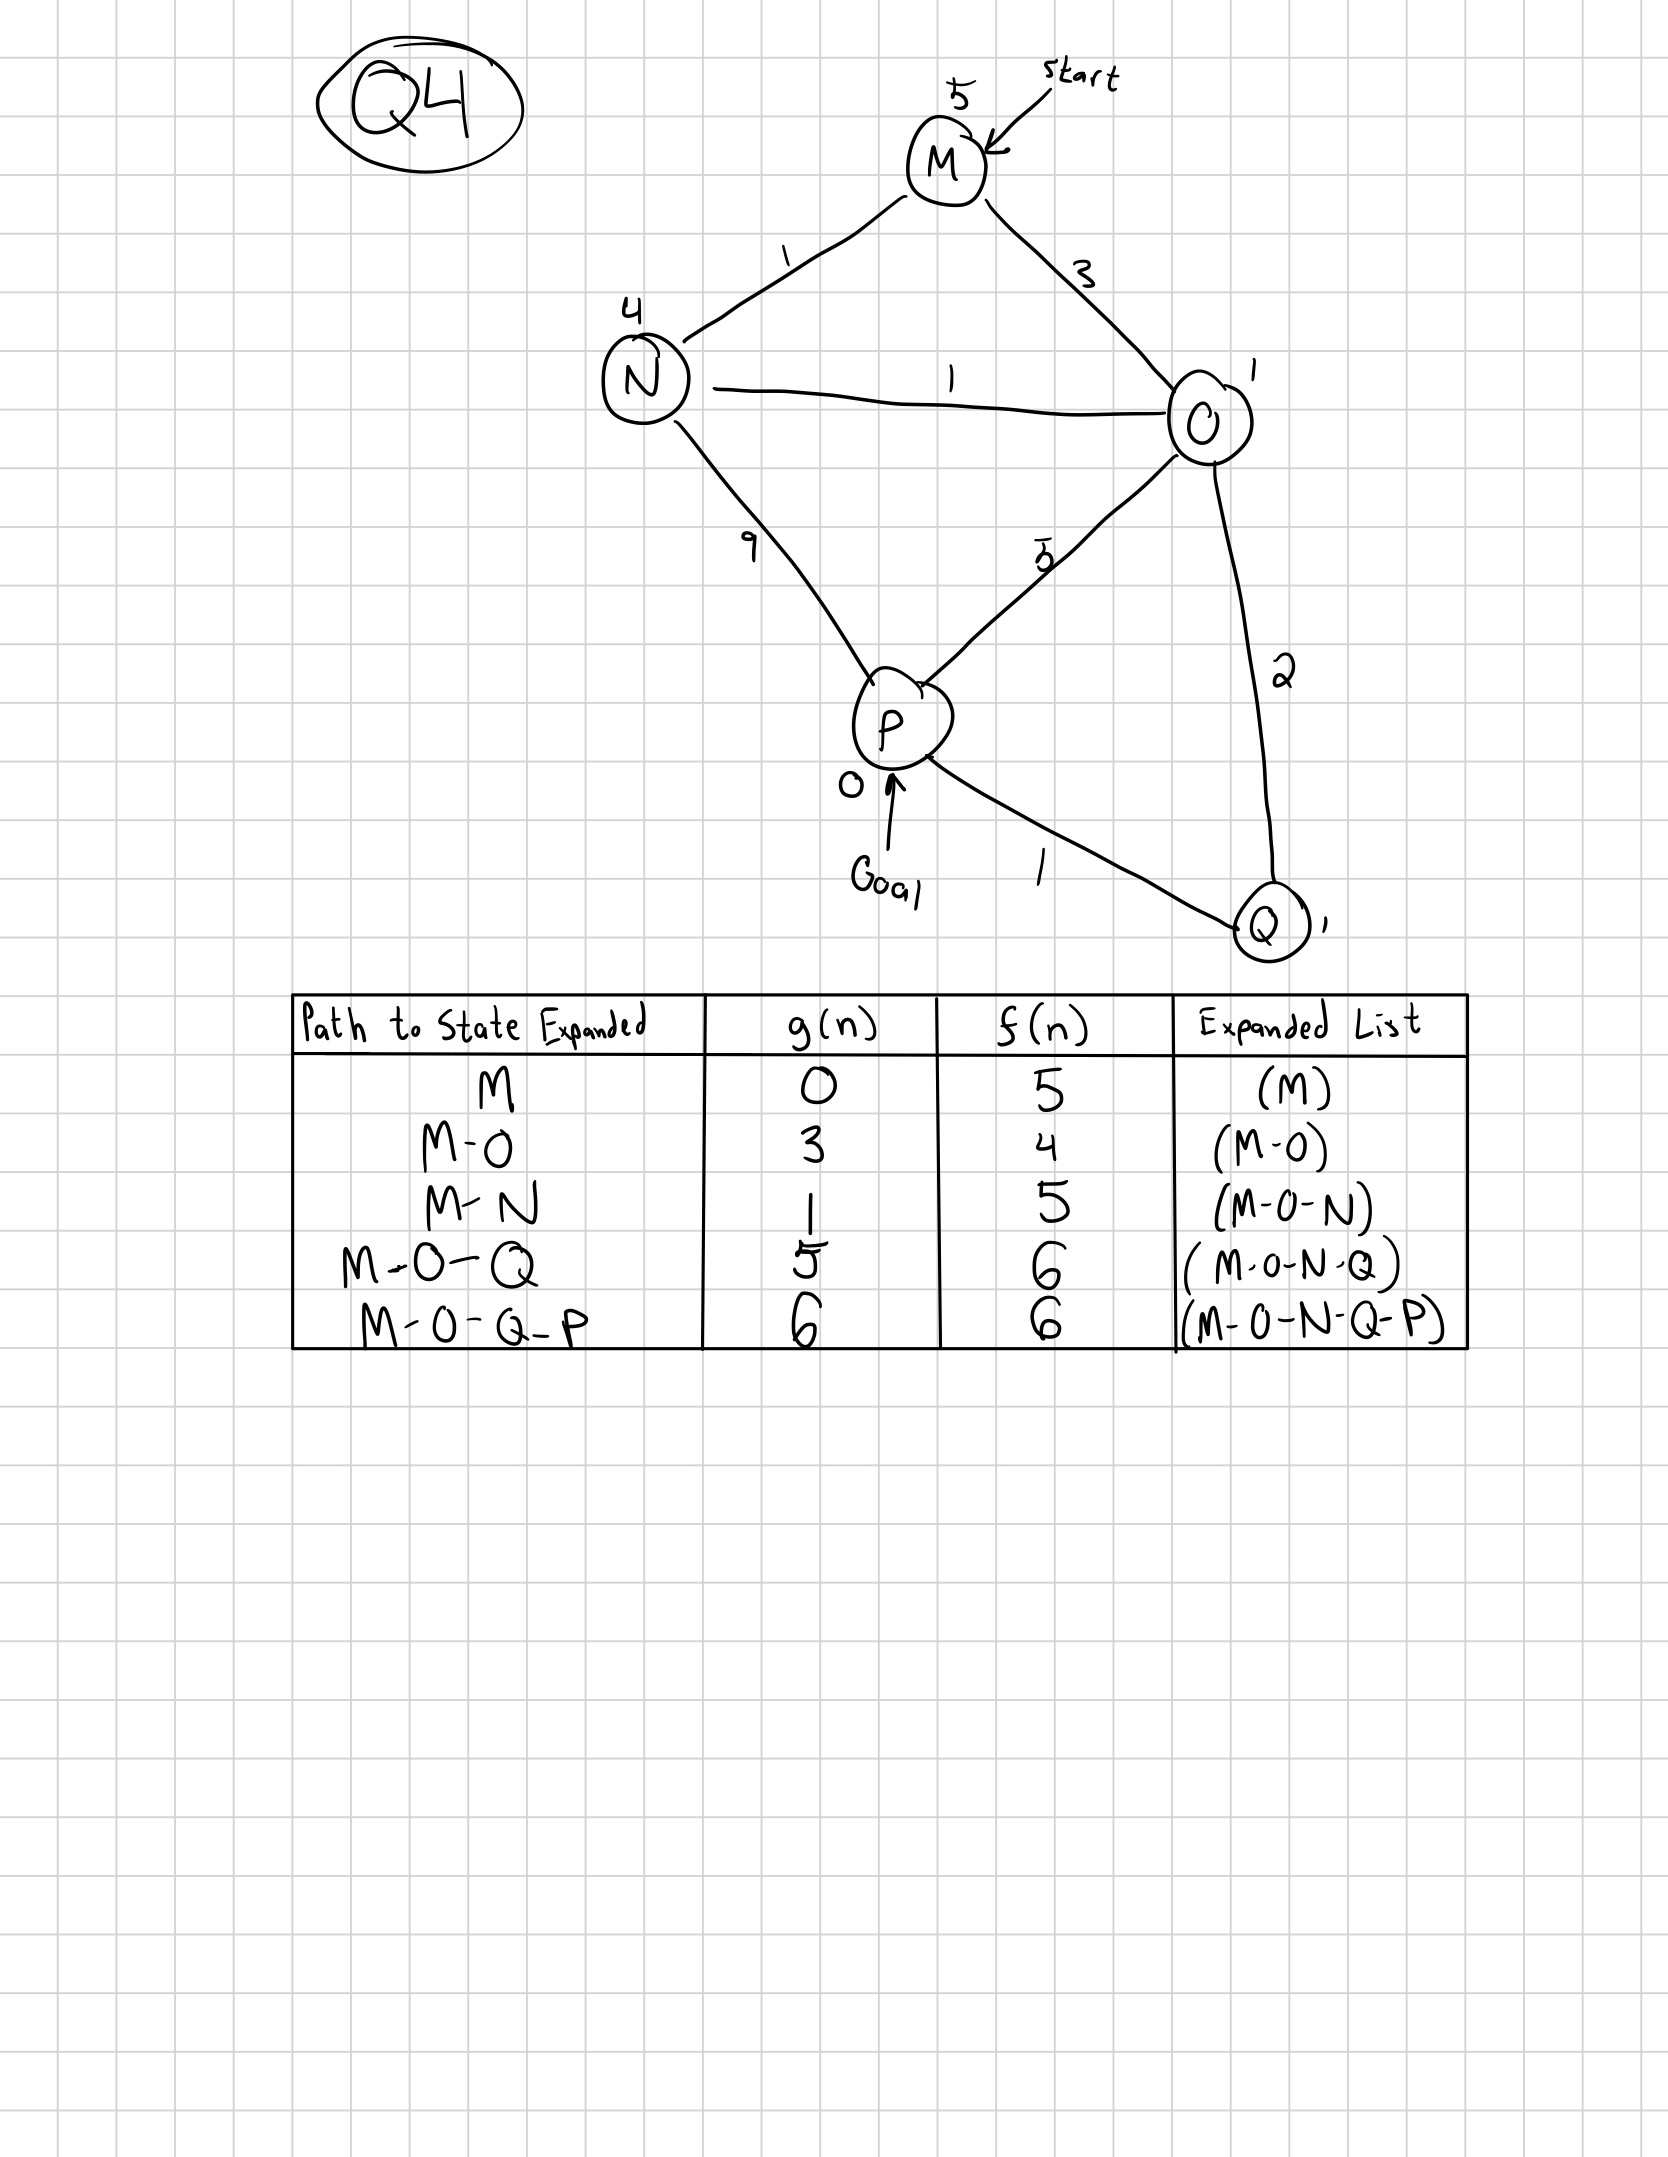 Q4
Start
5
M
1
3
4
N
1
1
O
9
5
2
P
0
Goal
1
Q
1
Path to State Expanded g(n) f(n) Expanded List
M 0 5 (M)
M-O 3 4 (M-O)
M-N 1 5 (M-O-N)
M-O-Q 5 6 (M-O-N-Q)
M-O-Q-P 6 6 (M-O-N-Q-P)